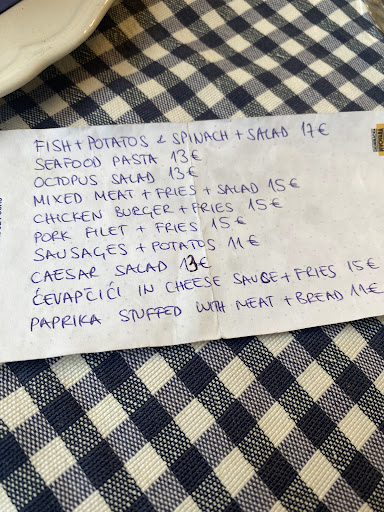 FISH + POTATOS & SPINACH + SALAD 17€
SEAFOOD PASTA 13€
OCTOPUS SALAD 13€
MIXED MEAT + FRIES + SALAD 15€
CHICKEN BURGER + FRIES 15€
PORK FILET + FRIES 15€
SAUSAGES + POTATOS 11€
CAESAR SALAD 13€
ČEVAPČIĆI IN CHEESE SAUSE + FRIES 15€
PAPRIKA STUFFED WITH MEAT + BREAD 11€